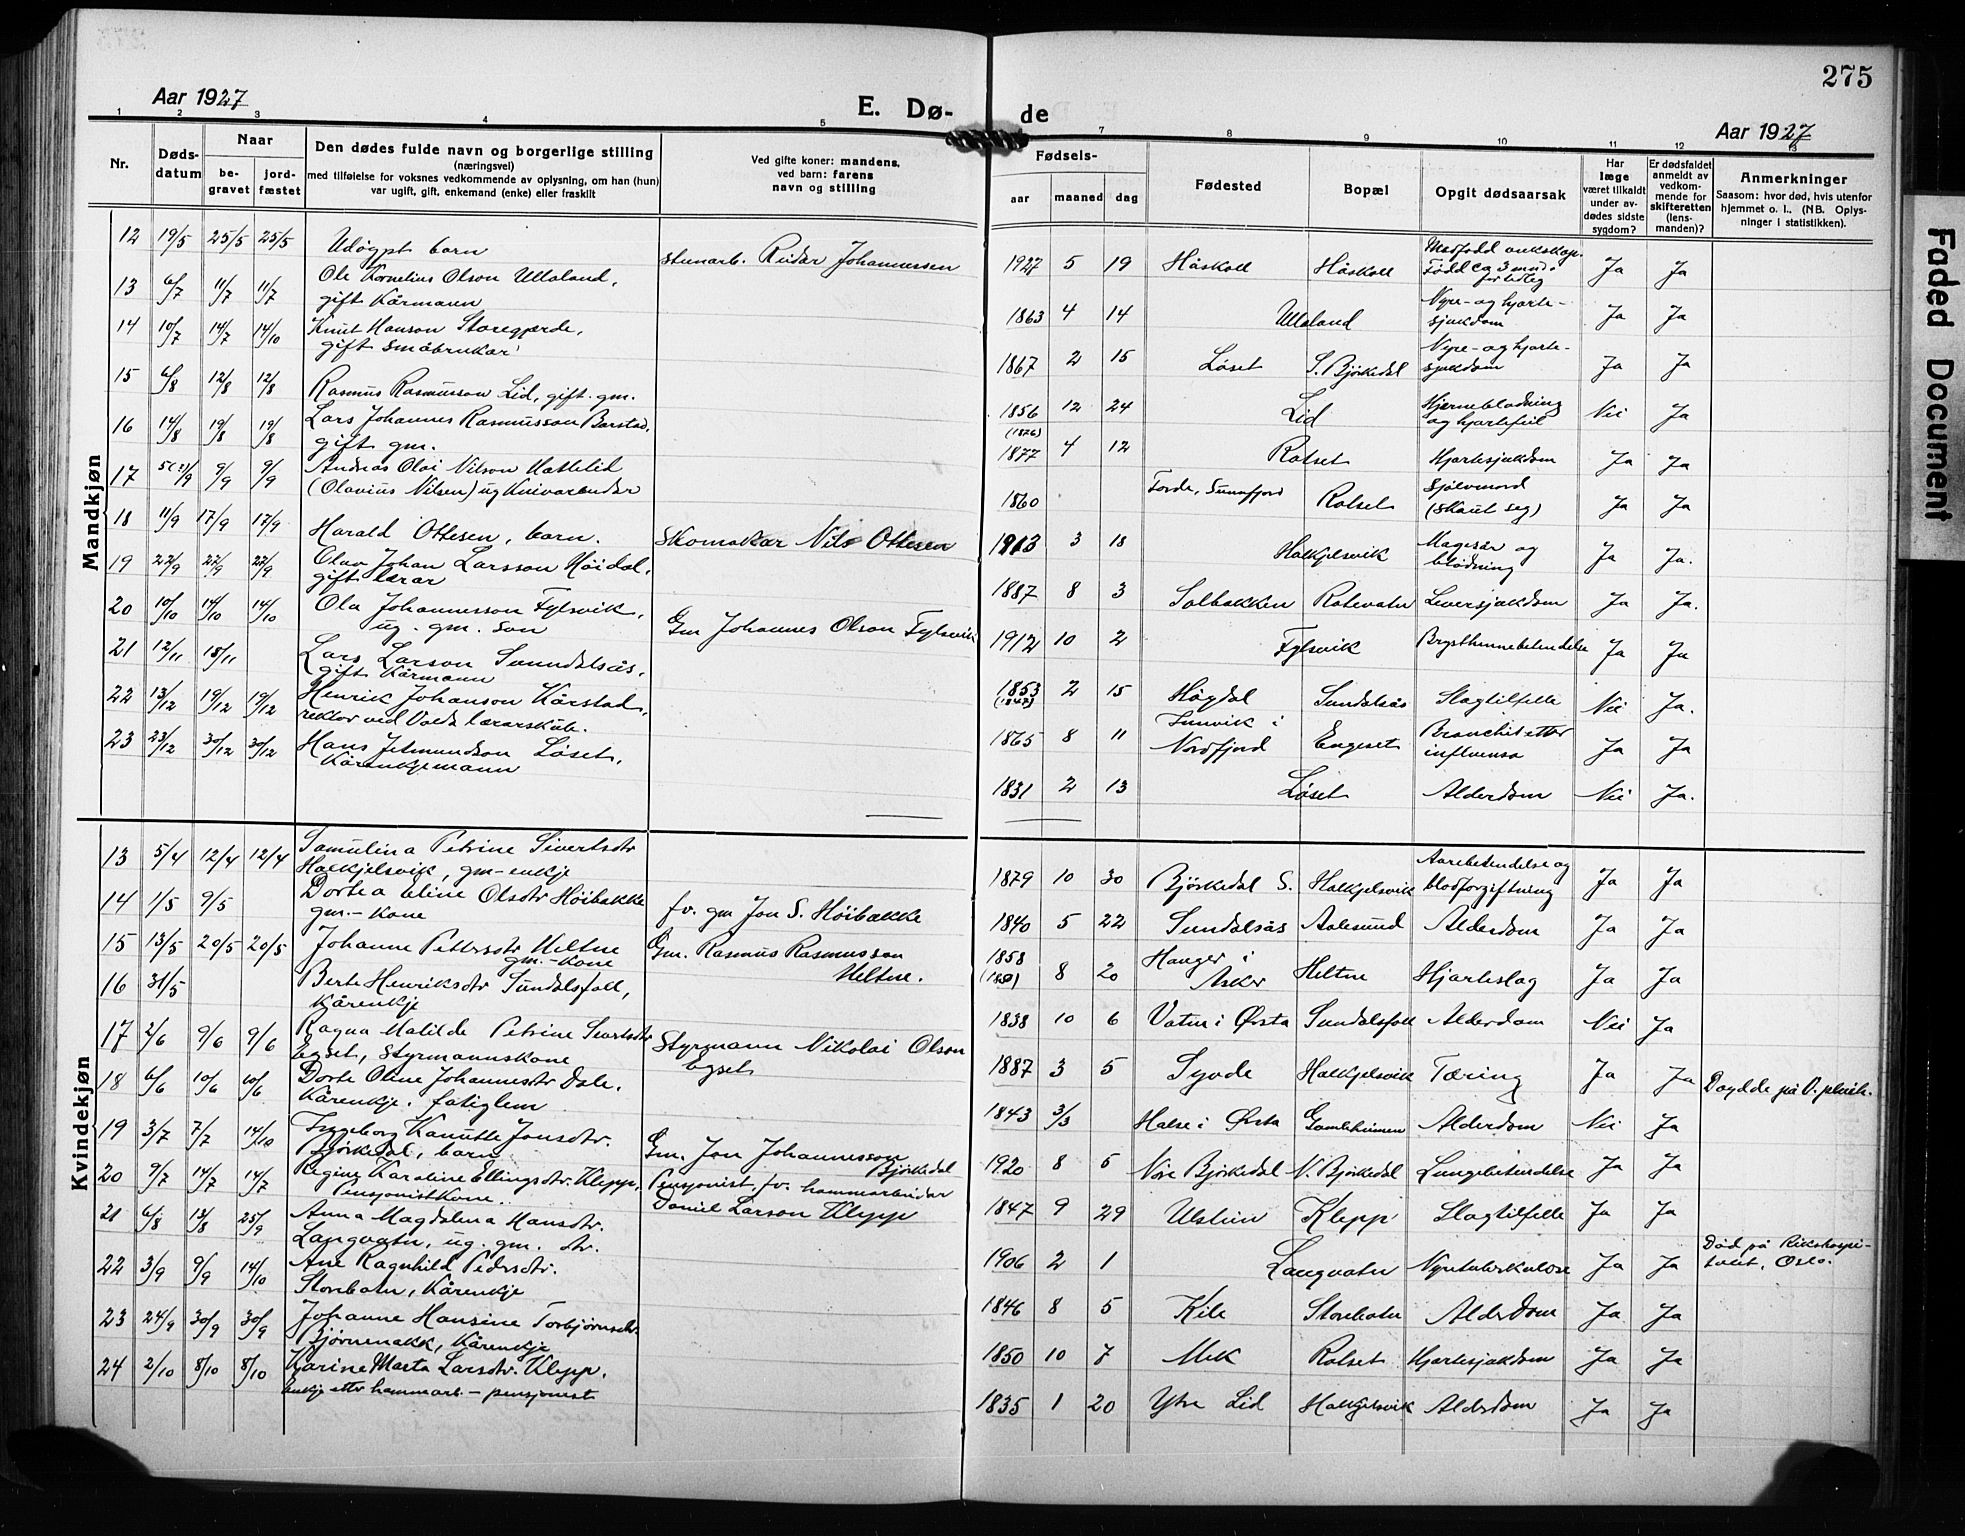 275
Aar 1927
E. Dø-
de
Aar 1927
1 2 3 4 5 7 8 9 10 11 12 13
Nr.
Døds-
datum
Naar
be-
gravet
jord-
fæstet
Den dødes fulde navn og borgerlige stilling
(næringsvei)
med tilføielse for voksnes vedkommende av oplysning, om han (hun)
var ugift, gift, enkemand (enke) eller fraskilt
Ved gifte koner: mandens,
ved barn: farens
navn og stilling
Fødsels-
aar maaned dag
Fødested
Bopæl
Opgit dødsaarsak
Har
læge
været tilkaldt
under av-
dødes sidste
sygdom?
Er dødsfaldet
anmeldt av
vedkom-
mende for
skifteretten
(lens-
manden)?
Anmerkninger
Saasom: hvor død, hvis utenfor
hjemmet o. l., (NB. Oplys-
ninger i statistikken).
Mandkjøn
12 19/5 25/5 25/5 Udøypt barn
stenarb. Reidar Johannessen
1927 5 19 Håskoll Håskoll Født ca 3 mnd. Ja Ja
13 6/7 11/7 11/7 Ole Kornelius Olson Ulleland,
gift Kårmann
1863 4 14 Ulleland Nyre- og hjarte-
sjukdom Ja Ja
14 10/7 14/7 14/10 Knut Hanson Storegjerde,
gift småbrukar
1867 2 15 Løset S. Bjørkedal Nyre- og hjarte-
sjukdom Ja Ja
15 6/8 12/8 12/8 Rasmus Rasmusson Lid, gift gm.
1856 12 24 Lid Hjerneblødning
og hjartefeil Nei Ja
16 14/8 19/8 19/8 Lars Johannes Rasmusson Barstad,
gift gm.
(1876)
1877 4 12 Rotset Hjartesjukdom Ja Ja
17 9/9 9/9 Andreas Olai Nilson Hattelid
(Olavius Nilsen) ug Knivarbeider
1860 Førde, Sunnfjord Rotset Sjølvmord
(skaut seg) Ja Ja
18 11/9 17/9 17/9 Harald Ottesen, barn.
Skomakar Nils Ottesen
1913 3 18 Halkjelsvik Magesår og
blødning Ja Ja.
19 22/9 27/9 27/9 Olav Johan Larsson Høidal,
gift lærar
1887 8 3 Solbakken Rotevatn Leversjukdom Ja Ja.
20 10/10 14/10 14/10 Ola Johannesson Fylsvik,
ug. gm. son
Gm Johannes Olson Fylsvik
1912 10 2 Fylsvik Brysthinnebetendelse Ja Ja
21 12/11 18/11 Lars Larson Sunndalsås,
gift Kårmann
1853
(1847) 2 15 Høydal Sundalsås Slagtilfelle Nei Ja.
22 13/12 19/12 19/12 Henrik Johanson Kårstad,
rektor ved Volda lærarskule.
1865 8 11 Nordfjord Engeset Bronchit etter
influensa Ja Ja
23 23/12 30/12 30/12 Hans Jetmundson Løset,
Kårenkjemann
1831 2 13 Løset Alderdom Nei Ja.
Kvindekjøn
13 5/4 12/4 12/4 Samulina Petrine Sivertsdtr
Halkjelsvik, gm-enkje
1879 10 30 Bjørkedal S. Halkjelsvik Aarebetendelse og
blodforgiftning Ja Ja
14 1/5 9/5 Dortea Eline Olsdtr Høibakke
gm.- kone
fv. gm Jon S. Høibakke
1840 5 22 Sundalsås Aalesund Alderdom Ja Ja
15 13/5 20/5 20/5 Johanne Pettersdtr Heltne
gm.-kone
Gm. Rasmus Rasmusson
Heltne.
1858 8 20 Hanger i
Asker Heltne Hjarteslag Ja Ja
16 31/5 Berte Henriksdtr Sundalsfoll,
Kårenkje
1838 10 6 Vatne i Ørsta Sundalsfoll Alderdom Nei Ja
17 2/6 9/6 9/6 Ragna Matilde Petrine Sivertsdtr
Egset, styrmannskone
Styrmann Nikolai Olson
Egset
1887 3 5 Syvde Halkjelsvik Tæring Ja Ja
18 6/6 10/6 10/6 Dorte Oline Johannesdtr Dale.
Kårenkje. fatiglem
1843 3/3 Halse i Ørsta Gamleheimen Alderdom Nei Ja
Døydde på V. pleieh.
19 3/7 7/7 14/10 Ingeborg Kanutte Jonsdtr.
Bjørkedal, barn
Gm. Jon Johannesson
Bjørkedal
1920 8 5 Nore Bjørkedal N. Bjørkedal Lungebetendelse Ja Ja
20 9/7 14/7 14/7 Regine Karoline Ellingsdtr. Klepp,
Pensjonistkone.
Pensjonist, fv. hammarbeidar
Daniel Larson Klepp
1847 9 29 Ulstein Klepp Slagtilfelle Ja Ja
21 6/8 13/8 25/9 Anna Magdalena Hansdtr.
Langvatn, ug. gm. dtr.
1906 2 1 Langvatn Nyretuberkulose Ja Ja
Død på Rikshospi-
talet, Oslo.
22 3/9 9/9 14/10 Ane Ragnhild Pedersdtr.
Storebotn, Kårenkje
1846 8 5 Kile Storebotn Alderdom Ja Ja
23 24/9 30/9 30/9 Johanne Hansine Torbjørnsdtr.
Bjørnenakk, Kårenkje
1850 10 7 Mek Rotset Hjartesjukdom Ja Ja
24 2/10 8/10 8/10 Karine Marta Larsdtr. Klepp.
Enkje etter hammarb. - pensjonist
1835 1 20 Ytre Lid Halkjelsvik Alderdom Ja Ja
Faded Document